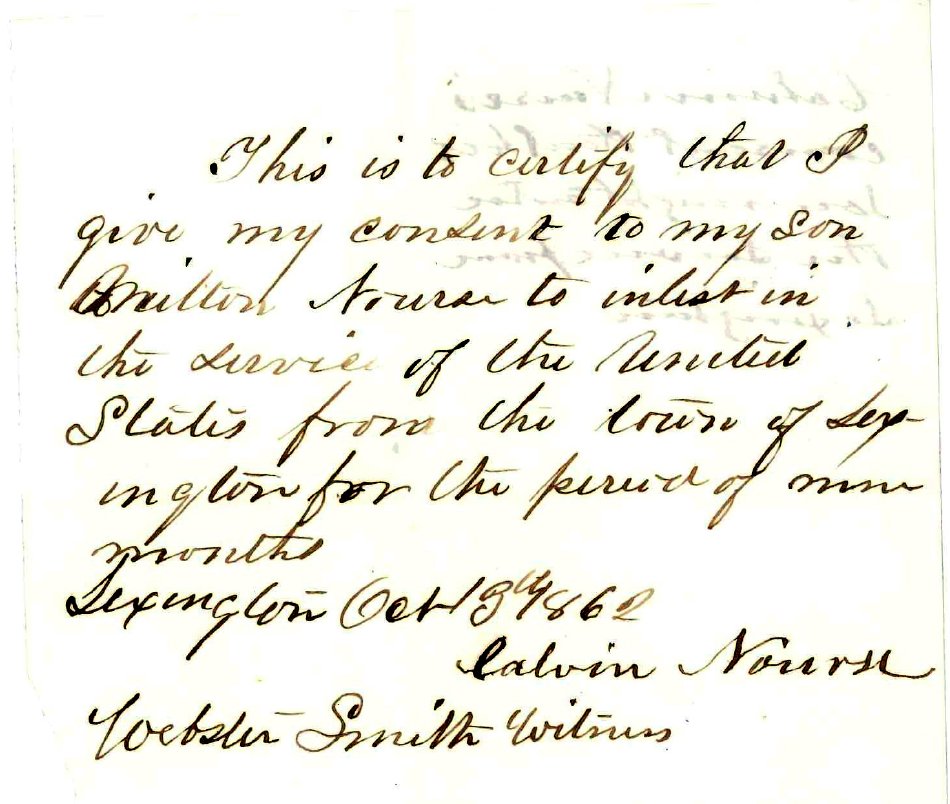 This is to certify that I
give my consent to my son
Milton Nourse to inlist in
the service of the United
States from the town of Lex-
ington for the period of nine
months
Lexington Oct 13th 1862
Calvin Nourse
Webster Smith Witness